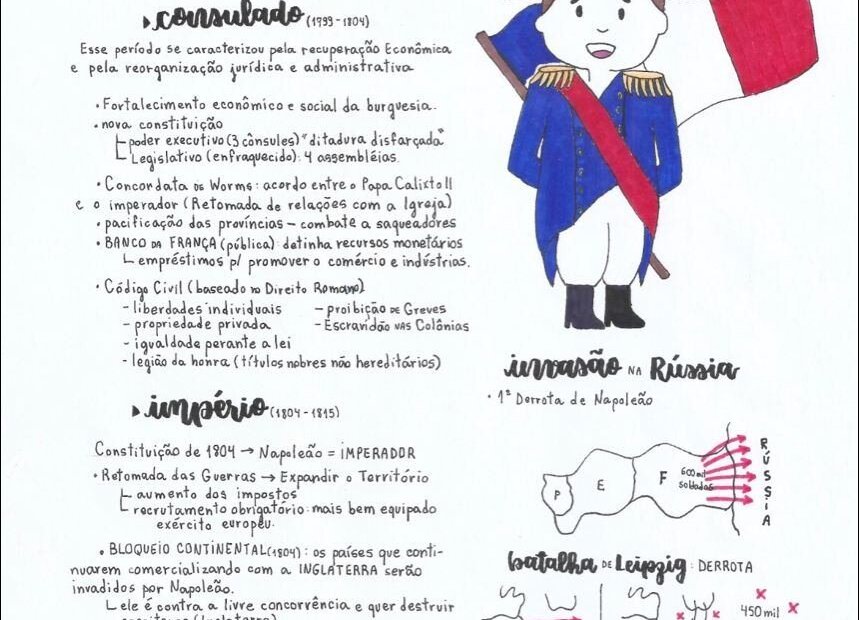 ▸ consulado (1799-1804)
Esse período se caracterizou pela recuperação Econômica
e pela reorganização jurídica e administrativa
• Fortalecimento econômico e social da burguesia.
• nova constituição
poder executivo (3 cônsules) "ditadura disfarçada"
Legislativo (enfraquecido): 4 assembléias.
• Concordata de Worms: acordo entre o Papa Calixto II
e o imperador (Retomada de relações com a Igreja)
• pacificação das províncias – combate a saqueadores
• BANCO DA FRANÇA (pública): detinha recursos monetários
empréstimos p/ promover o comércio e indústrias.
• Código Civil (baseado no Direito Romano)
- liberdades individuais
- proibição de Greves
- propriedade privada
- Escravidão nas Colônias
- igualdade perante a lei
- legião da honra (títulos nobres não hereditários)
▸ império (1804-1815)
Constituição de 1804 → Napoleão = IMPERADOR
• Retomada das Guerras → Expandir o Território
aumento dos impostos
recrutamento obrigatório: mais bem equipado
exército europeu.
• BLOQUEIO CONTINENTAL (1804): os países que conti-
nuarem comercializando com a INGLATERRA serão
invadidos por Napoleão.
ele é contra a livre concorrência e quer destruir
invasão na Rússia
• 1ª Derrota de Napoleão
P
E
F
600 mil
soldados
RÚSSIA
batalha de Leipzig: DERROTA
450 mil